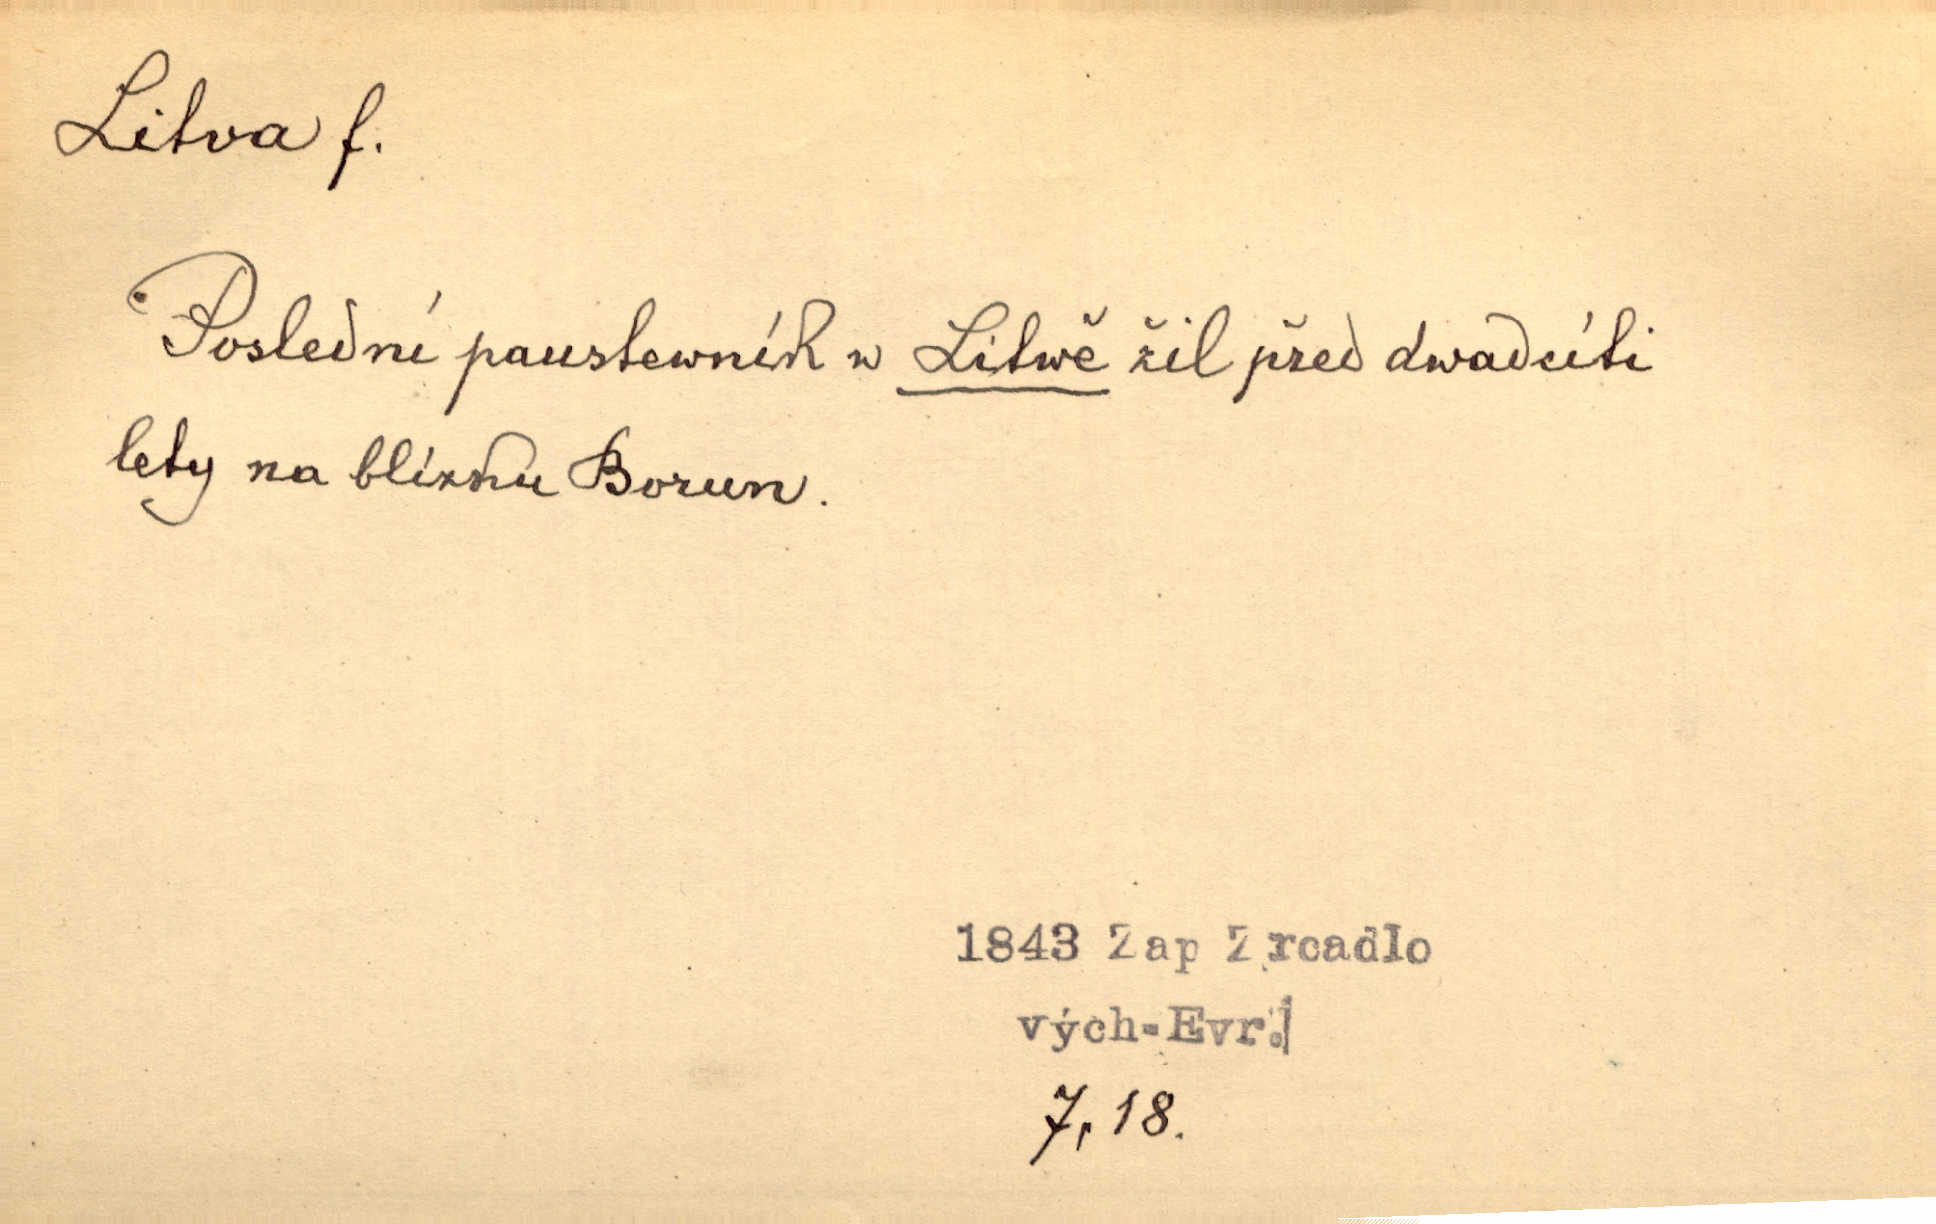 Litva f.
Poslední paustewník w Litwě žil před dwadcíti
lety na blízku Borun.
1843 Zap Zrcadlo
vých-Evr.
7, 18.